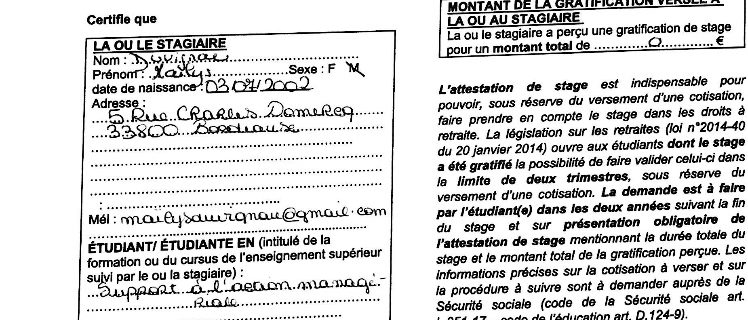 Certifie que
LA OU LE STAGIAIRE
Nom :
Prénom : Maïlys Sexe : F M
date de naissance : 03/07/2002
Adresse :
5 Rue Charles Domercq
33800 Bordeaux
Mél : mailysauvignau@gmail.com
ÉTUDIANT/ ÉTUDIANTE EN (intitulé de la
formation ou du cursus de l'enseignement supérieur
suivi par le ou la stagiaire) :
Support à l'action manag-
riale
MONTANT DE LA GRATIFICATION VERSÉE A
LA OU AU STAGIAIRE
La ou le stagiaire a perçu une gratification de stage
pour un montant total de 0 €
L'attestation de stage est indispensable pour
pouvoir, sous réserve du versement d'une cotisation,
faire prendre en compte le stage dans les droits à
retraite. La législation sur les retraites (loi n°2014-40
du 20 janvier 2014) ouvre aux étudiants dont le stage
a été gratifié la possibilité de faire valider celui-ci dans
la limite de deux trimestres, sous réserve du
versement d'une cotisation. La demande est à faire
par l'étudiant(e) dans les deux années suivant la fin
du stage et sur présentation obligatoire de
l'attestation de stage mentionnant la durée totale du
stage et le montant total de la gratification perçue. Les
informations précises sur la cotisation à verser et sur
la procédure à suivre sont à demander auprès de la
Sécurité sociale (code de la Sécurité sociale art.
L.351-17 code de l'éducation art. D.124-9).